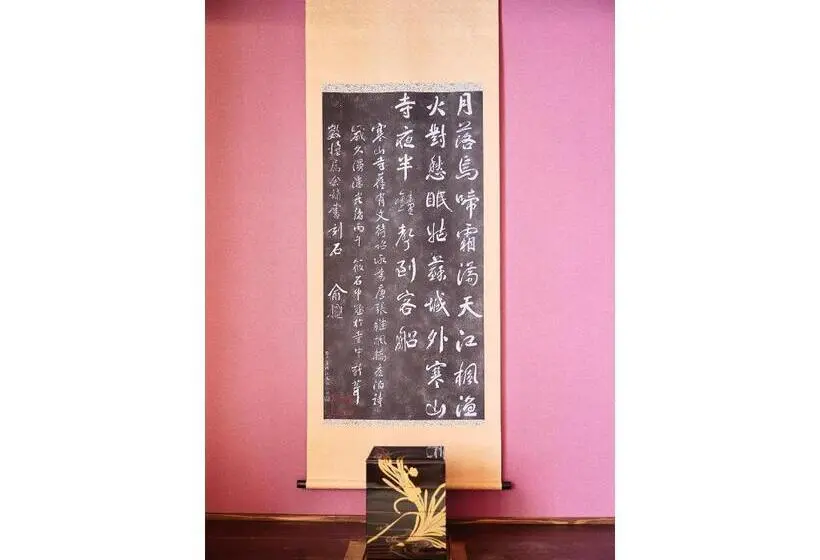 月落烏啼霜满天江楓漁
火對愁眠姑蘇城外寒山
寺夜半鐘聲到客船
寒山寺舊有文待詔所書唐張繼楓橋夜泊詩
歲久漫漶光緒丙午筱石中丞於寺中新葺
數楹屬余補書刻石 俞樾